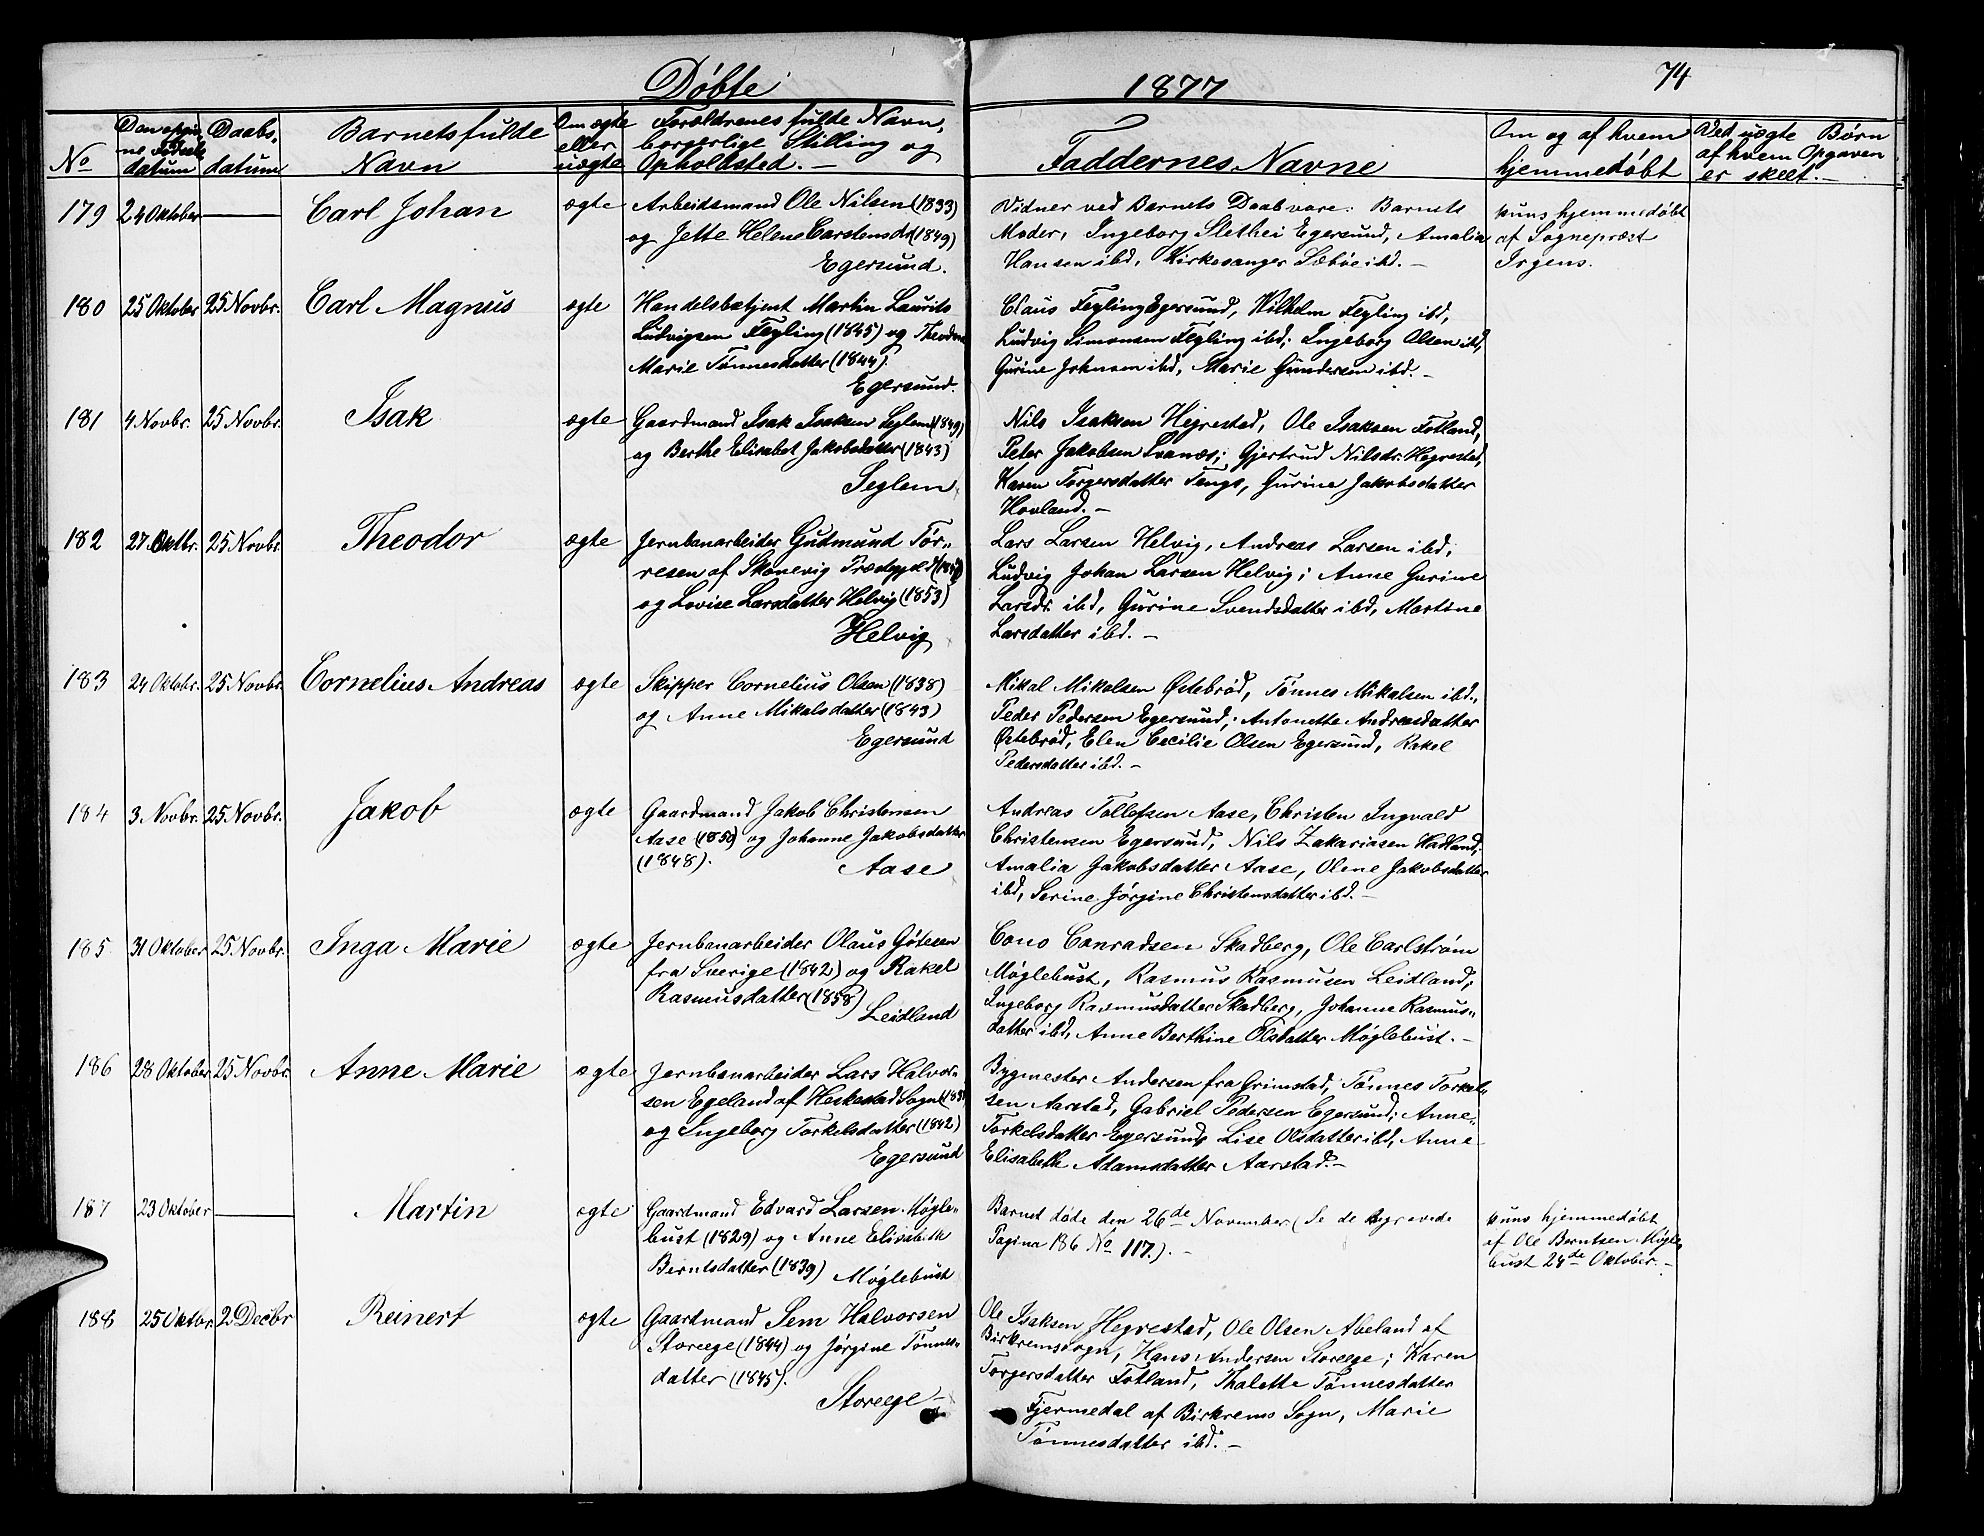 Døbte
1877
74
No
Den opgivne Fødselsdatum
Daabsdatum
Barnets fulde Navn
Om ægte eller uægte
Forældrenes fulde Navn, borgerlige Stilling og Opholdsted. —
Faddernes Navne
Om og af hvem hjemmedøbt
Ved uægte Børn af hvem Opgaven er skeet. —
179 24 Oktober — Carl Johan ægte
Arbeidsmand Ole Nilsen (1833)
og Jette Helene Carstensdr (1849)
Egersund.
Vidner ved Barnets Daab vare: Barnets
Moder, Ingeborg Slethei Egersund, Amalia
Hansen ibd, Kirkesanger Sæbøe ibd. —
kuns hjemmedøbt
af Sognepræst
Irgens.
180 25 Oktober 25 Novbr. Carl Magnus ægte
Handelsbetjent Martin Laurits
Ludvigsen Feyling (1845) og Theodora
Marie Tønnesdatter (1844).
Egersund.
Claus Feyling Egersund, Wilhelm Feyling ibd,
Ludvig Simonsen Feyling ibd; Ingeborg Olsen ibd,
Gurine Johnsen ibd, Marie Gundersen ibd. —
181 4 Novbr. 25 Novbr. Isak ægte
Gaardmand Isak Isaksen Seglem (1849)
og Berthe Elisabet Jakobsdatter (1843)
Seglem
Nils Isaksen Hegrestad, Ole Isaksen Fotland,
Peter Jakobsen Svanæs; Gjertrud Nilsdr. Hegrestad,
Karen Torgersdatter Tengs, Gurine Jakobsdatter
Hovland. —
182 27. Oktbr. 25 Novbr. Theodor ægte
Jernbanarbeider Gudmund Tør-
resen af Skonevig Præstegjæld
og Lovise Larsdatter Helvig (1853)
Helvig
Lars Larsen Helvig, Andreas Larsen ibd,
Ludvig Johan Larsen Helvig; Anne Gurine
Larsdr. ibd, Gurine Svendsdatter ibd, Martine
Larsdatter ibd. —
183 24 Oktobr. 25 Novbr. Cornelius Andreas ægte
Skipper Cornelius Olsen (1838)
og Anne Mikalsdatter (1843)
Egersund
Mikal Mikalsen Østebrød, Tønnes Mikalsen ibd.,
Peder Pedersen Egersund; Antonette Andreasdatter
Østebrød, Elen Cecilie Olsen Egersund, Rakel
Pedersdatter ibd. —
184 3. Novbr. 25 Novbr. Jakob ægte
Gaardmand Jakob Christensen
Aase (1850) og Johanne Jakobsdatter
(1848).
Aase
Andreas Tollefsen Aase, Christen Ingvald
Christensen Egersund, Nils Zakariasen Hadland;
Amalia Jakobsdatter Aase, Olene Jakobsdatter
ibd, Serine Jørgine Christensdatter ibd. —
185 31 Oktober 25 Novbr. Inga Marie ægte
Jernbanarbeider Olaus Gøtesen
fra Sverige (1842) og Rakel
Rasmusdatter (1858)
Leidland
Cono Conradsen Skadberg, Ole Carlstrøm
Møglebust, Rasmus Rasmusen Leidland,
Ingeborg Rasmusdatter Skadberg, Johanne Rasmus-
datter ibd, Anne Berthine Olsdatter Møglebust. —
186 28 Oktober 25 Novbr. Anne Marie ægte
Jernbanarbeider Lars Halvor-
sen Egeland af Heskestad Sogn
og Ingeborg Torkelsdatter (1842)
Egersund
Bygmester Andersen fra Grimstad, Tønnes Torkel-
sen Aarstad, Gabriel Pedersen Egersund; Anne
Torkelsdatter Egersund, Lise Olsdatter ibd, Anne
Elisabeth Adamsdatter Aarstad. —
187 23 Oktober — Martin ægte
Gaardmand Edvard Larsen Møgle-
bust (1829) og Anne Elisabeth
Berntsdatter (1839) Møglebust
Barnet døde den 26de November (Se de begravede
Pagina 186 No 117.). —
kuns hjemmedøbt
af Ole Berntsen Møgle-
bust 24de Oktober. —
188 25 Oktbr 2 Decbr Reinert ægte
Gaardmand Sem Halvorsen
Storeege (1844) og Jørgine Tønnes-
datter (1845).
Storeege
Ole Isaksen Hegrestad, Ole Olsen Abeland af
Birkrems Sogn, Hans Andersen Storeege; Karen
Torgersdatter Fotland, Thalette Tønnesdatter
Fjermedal af Birkrems Sogn, Marie
Tønnesdatter ibd. —